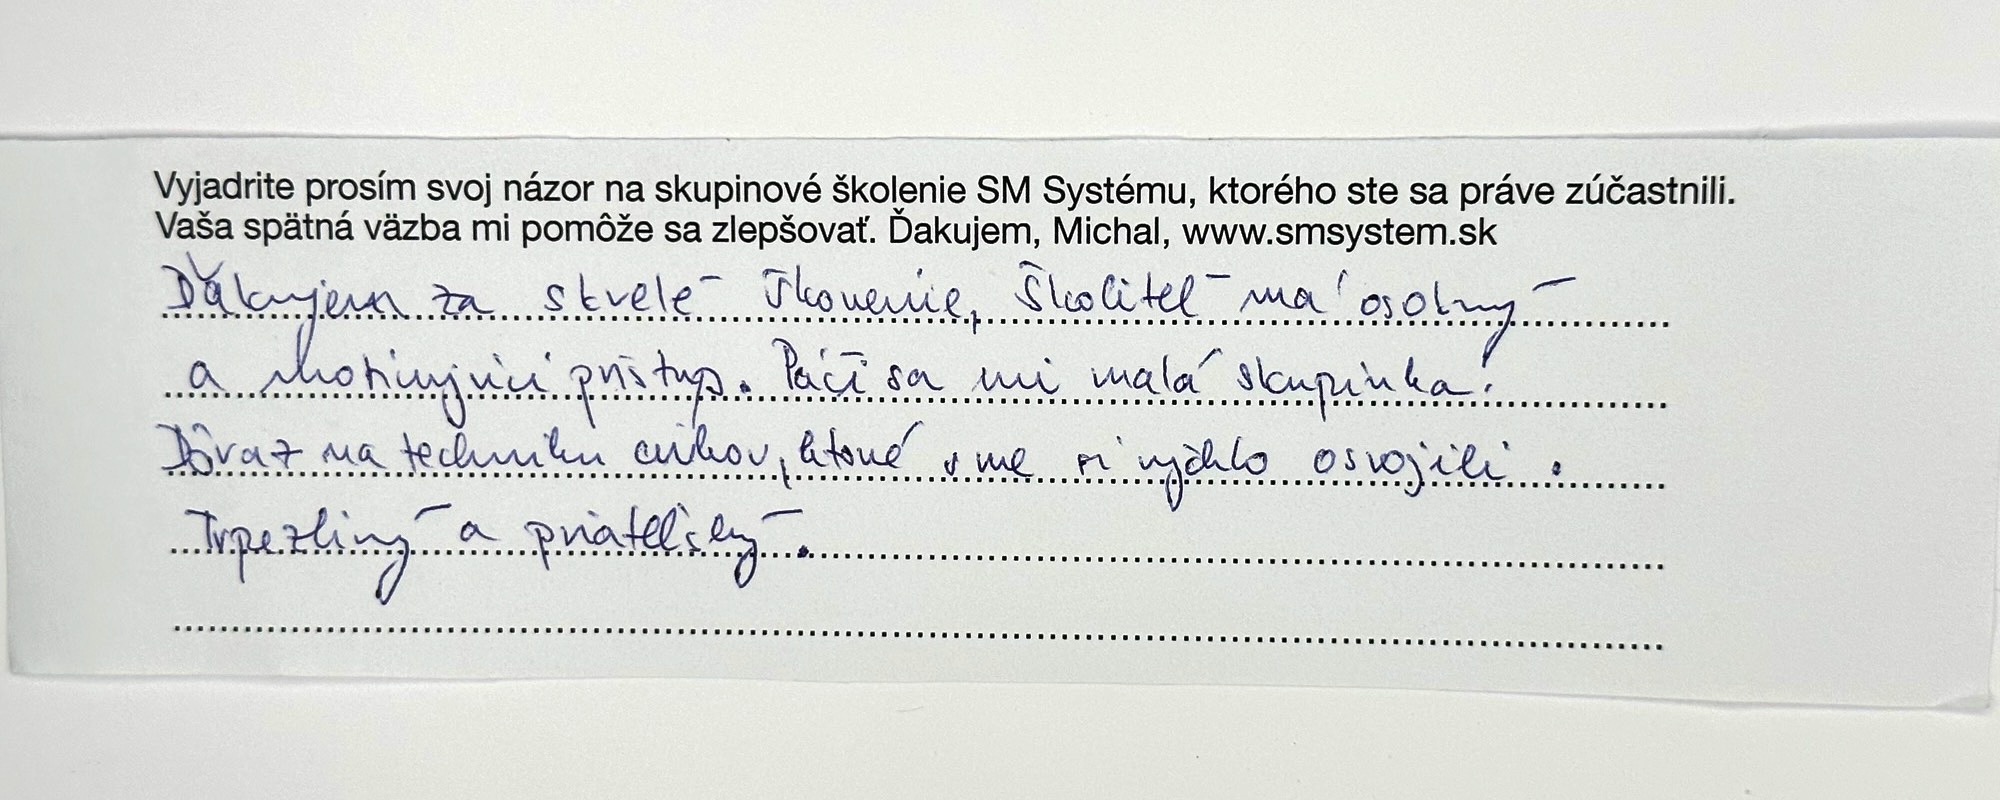 Vyjadrite prosím svoj názor na skupinové školenie SM Systému, ktorého ste sa práve zúčastnili.
Vaša spätná väzba mi pomôže sa zlepšovať. Ďakujem, Michal, www.smsystem.sk
Ďakujem za skvelé školenie, školiteľ má osobný
a motivujúci prístup. Páči sa mi malá skupinka.
Dôraz na techniku cvikov, ktoré sme si rýchlo osvojili.
Trpezlivý a priateľský.